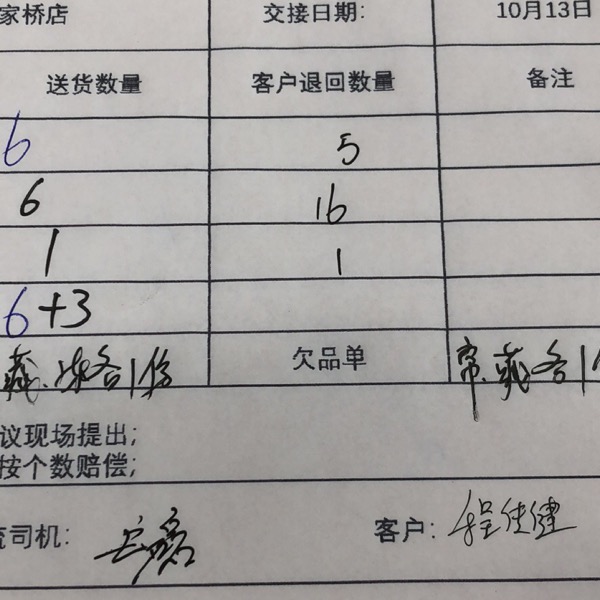 家桥店 交接日期: 10月13日
送货数量 客户退回数量 备注
6 5
6 16
1 1
6+3
藏.冻各1份 欠品单 常.藏各1
议现场提出;
按个数赔偿;
司机: 客户: 程佳健